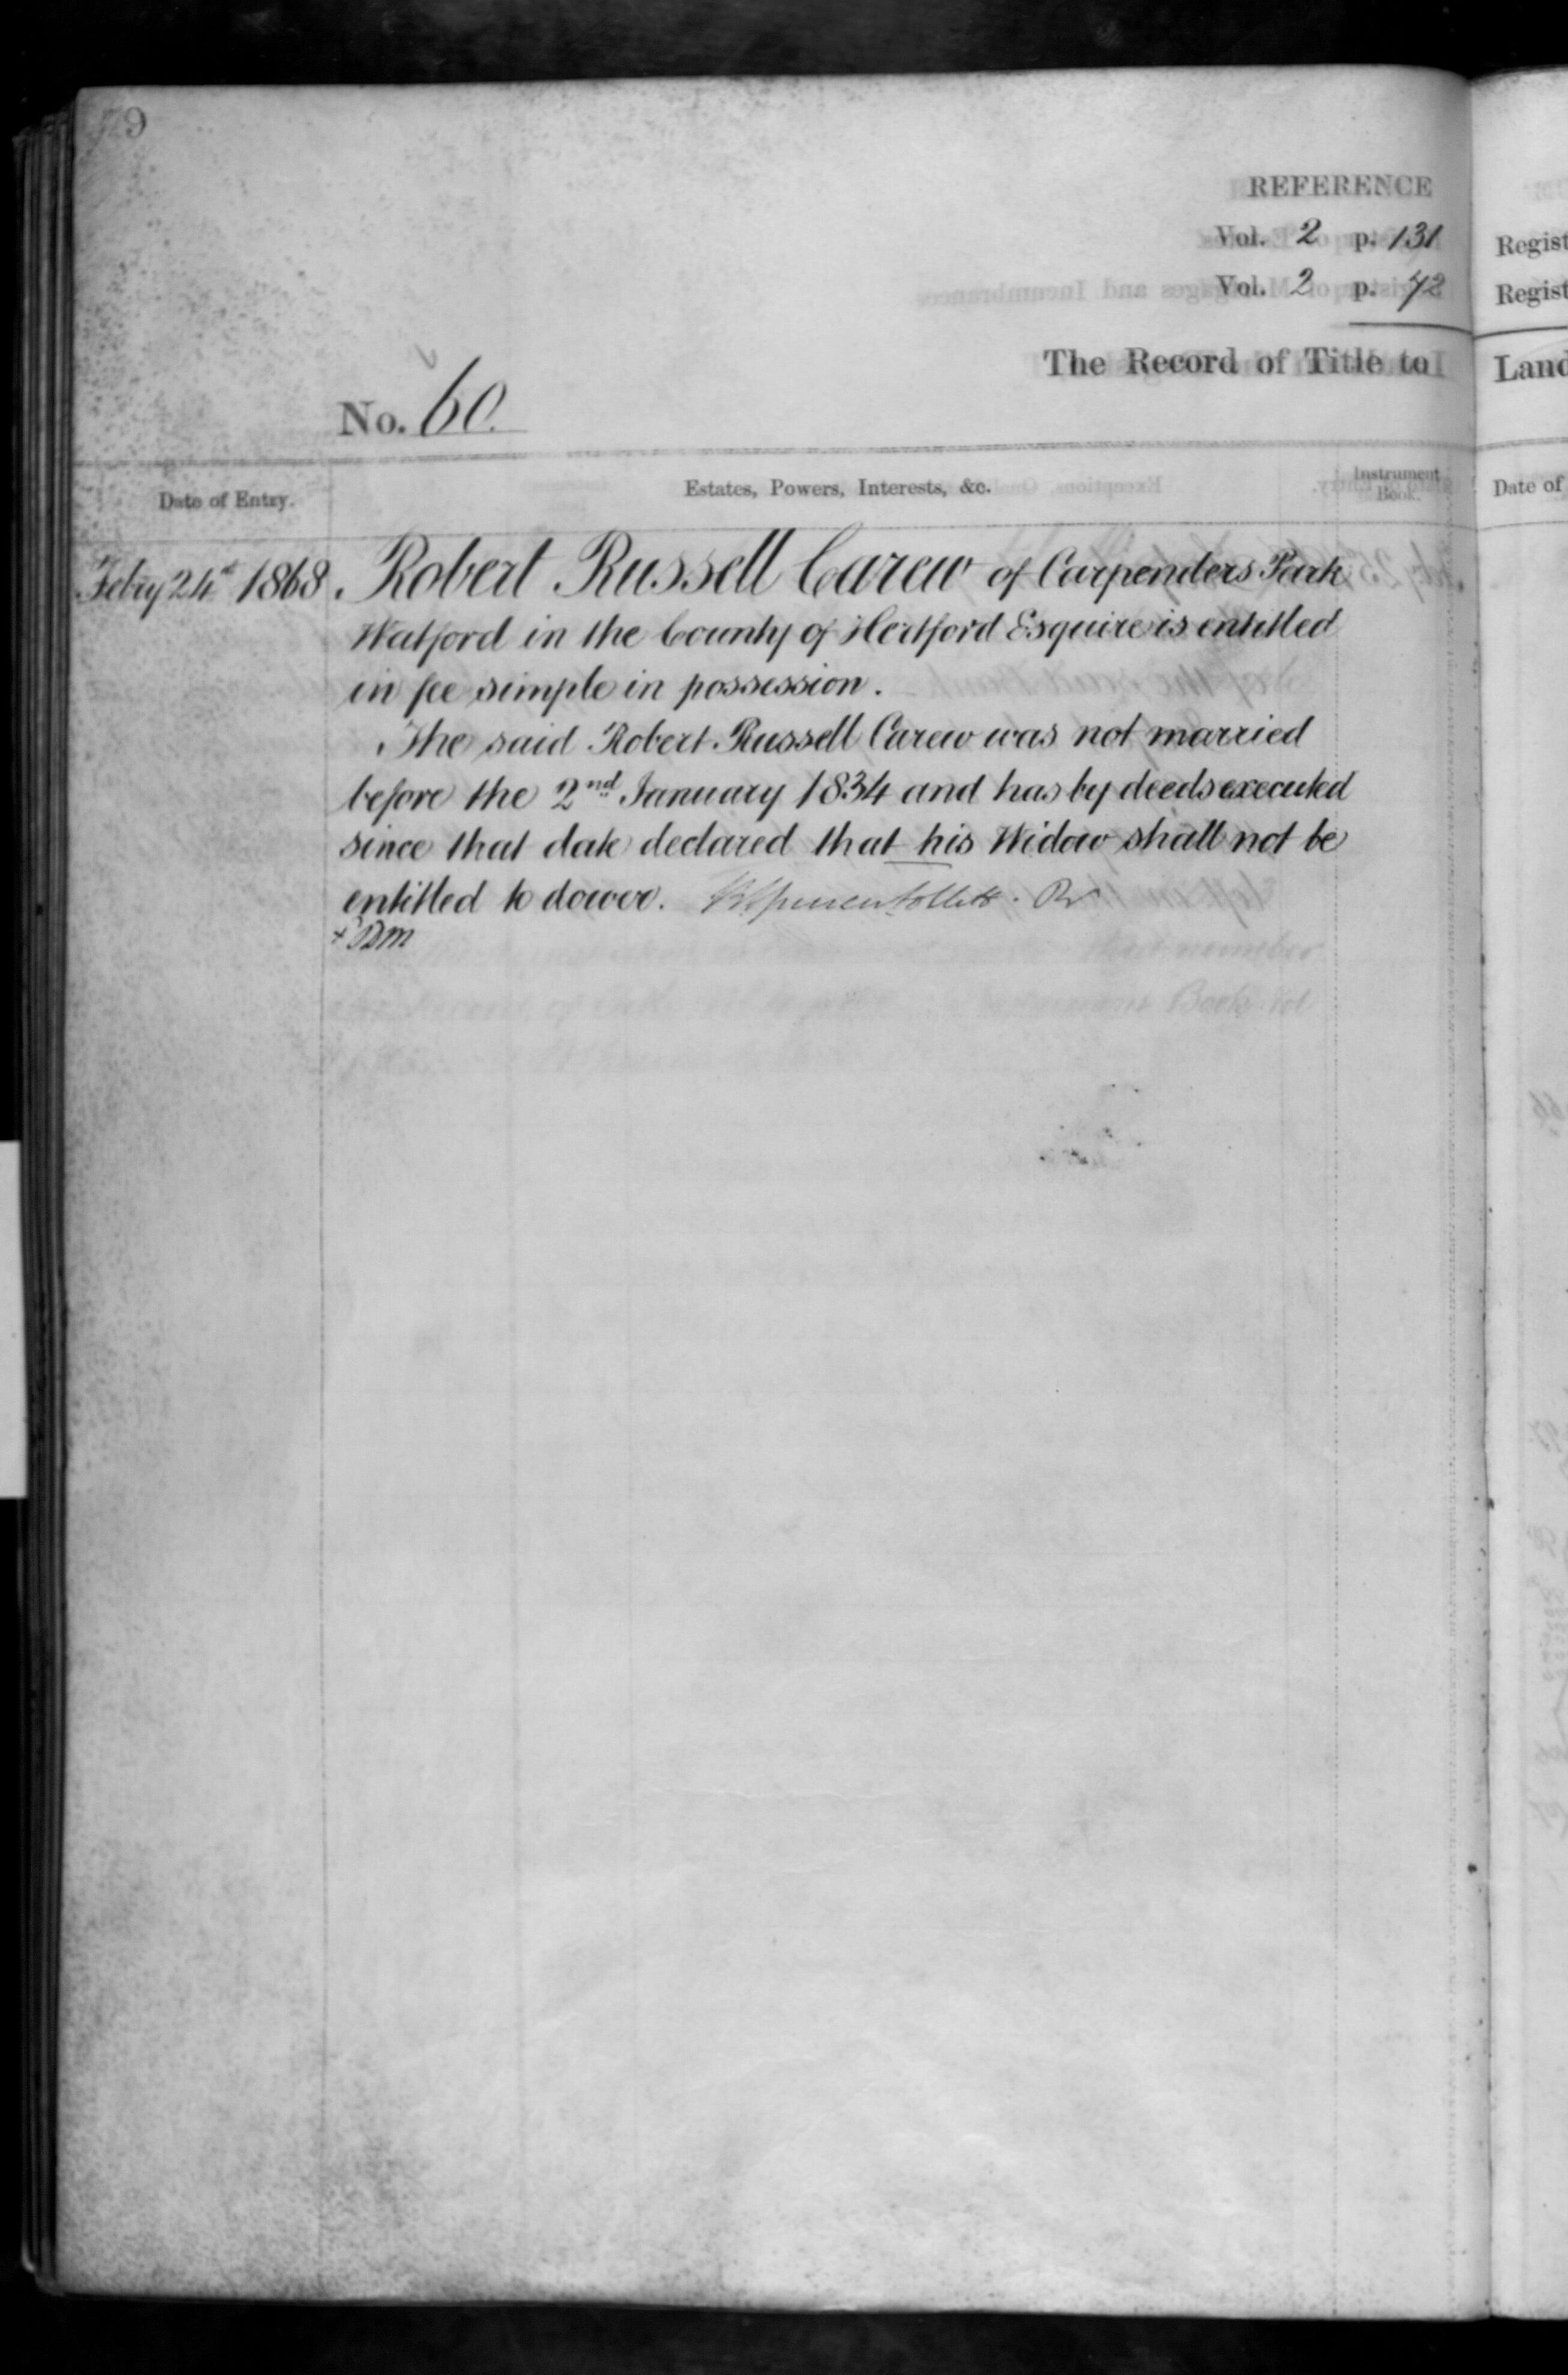 REFERENCE
Vol. 2 p. 131
Vol. 2 p. 72
The Record of Title to
No. 60.
Date of Entry.
Estates, Powers, Interests, &c.
Instrument Book.
Febry 24th 1868. Robert Russell Carew of Carpenders Park
Watford in the County of Hertford Esquire is entitled
in fee simple in possession.
The said Robert Russell Carew was not married
before the 2nd January 1834 and has by deeds executed
since that date declared that his Widow shall not be
entitled to dower.
Regist
Regist
Land
Date of